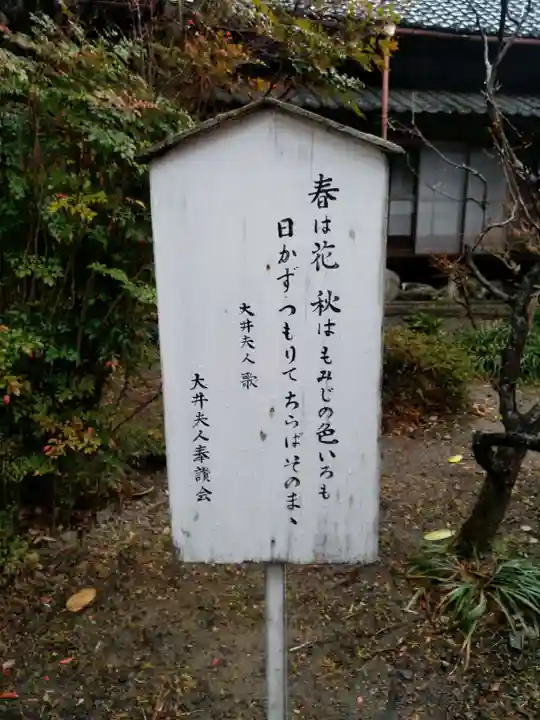 春は花 秋はもみじの色いろも
日かずつもりてちらばそのまゝ
大井夫人歌
大井夫人奉讃会